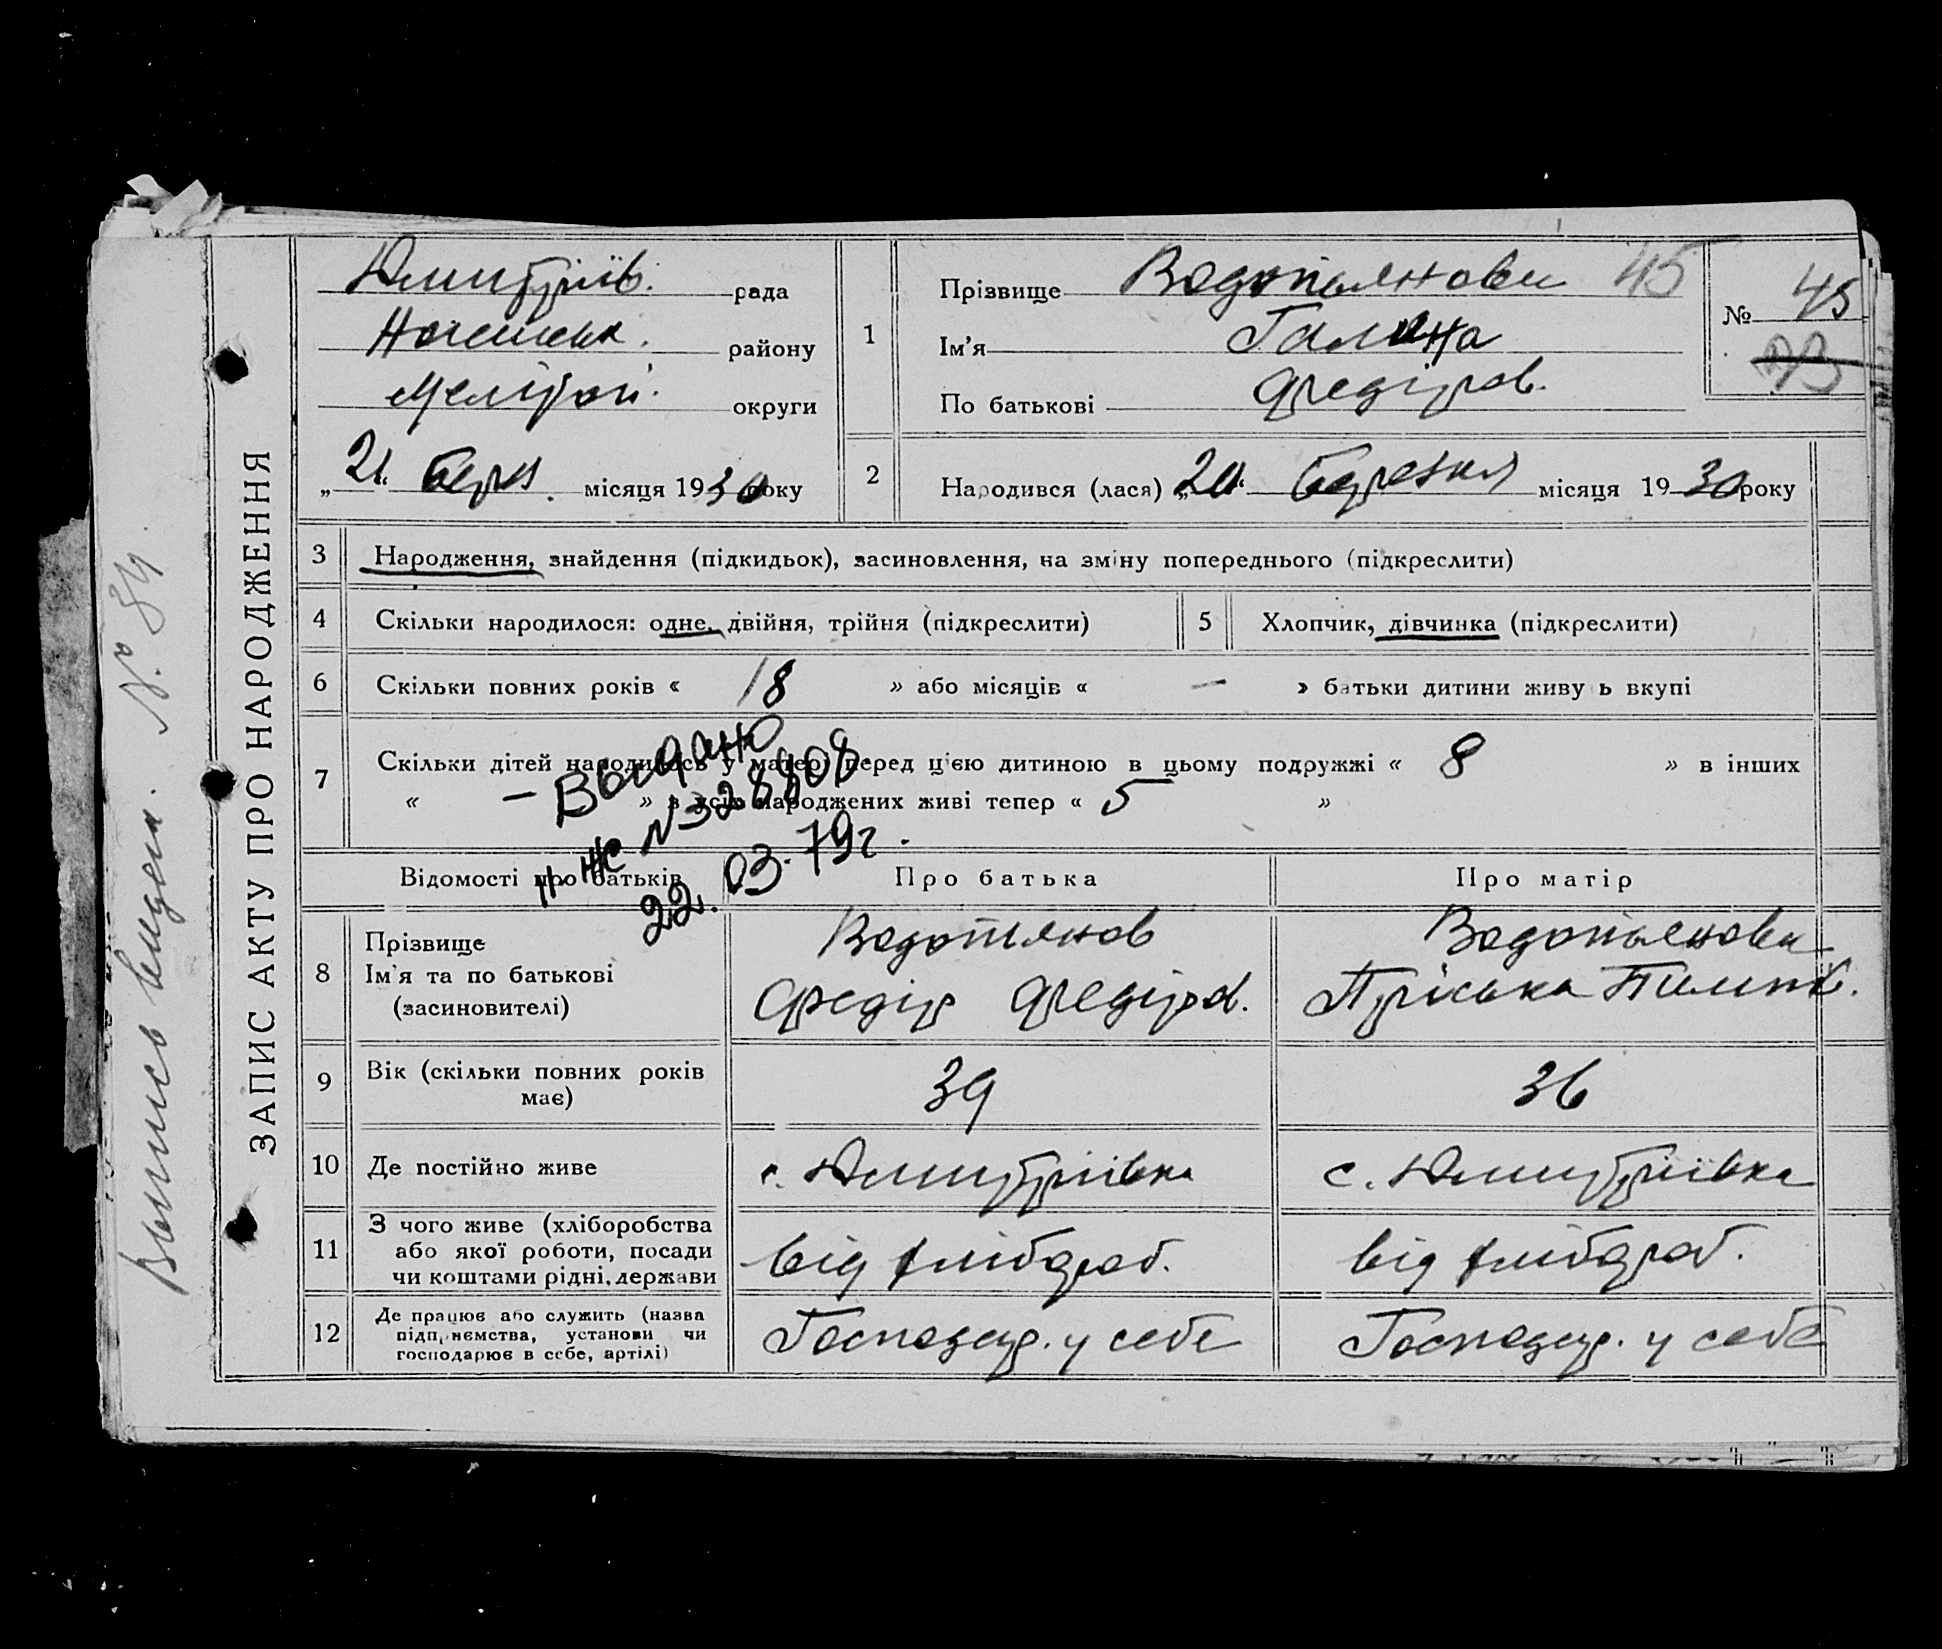 Дмитріїв. рада
району
Меліտոп. округи
„21“ берез. місяця 1930 року
1
Прізвище Водопьянова 45
Ім'я Галина
По батькові Федіров.
№ 45
93
2
Народився (лася) „20“ березня місяця 1930 року
ЗАПИС АКТУ ПРО НАРОДЖЕННЯ
Выпись выдена. №. 84.
3 Народження, знайдення (підкидьок), засиновлення, на зміну попереднього (підкреслити)
4 Скільки народилося: одне, двійня, трійня (підкреслити)
5 Хлопчик, дівчинка (підкреслити)
6 Скільки повних років « 18 » або місяців « — » батьки дитини живуть вкупі
7 Скільки дітей народилось у матері перед цією дитиною в цьому подружжі « 8 » в інших
« — » з усіх народжених живі тепер « 5 »
Выдано
II-ЖС №328808
22.03.79г.
Відомості про батьків Про батька Про матір
8
Прізвище
Ім'я та по батькові
(засиновителі)
Водопянов
Федір Федіров.
Водопьянова
Пріська Пилипів.
9
Вік (скільки повних років
має)
39
36
10 Де постійно живе
с. Дмитріївка
с. Дмитріївка
11
З чого живе (хліборобства
або якої роботи, посади
чи коштами рідні, держави
від хлібороб.
від хлібороб.
12
Де працює або служить (назва
підприємства, установи чи
господарює в себе, артілі)
Господар. у себе
Господар. у себе